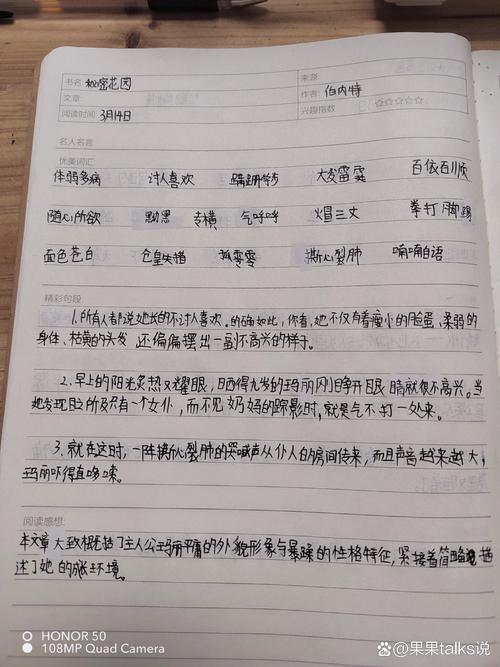 书名: 秘密花园
来源:
文章:
作者: 伯内特
阅读时间: 3月14日
兴趣指数 ☆☆☆☆☆
名人名言
优美词汇
体弱多病 讨人喜欢 蹒跚学步 大发雷霆 百依百顺
随心所欲 黝黑 专横 气呼呼 火冒三丈 拳打脚踢
面色苍白 仓皇失措 孤零零 撕心裂肺 喃喃自语
精彩句段
1.所有人都说她长的不讨人喜欢。的确如此,你看,她不仅有着瘦小的脸蛋,柔弱的
身体、枯黄的头发 还偏偏摆出一副不高兴的样子。
2.早上的阳光炙热又耀眼,日西得九岁的玛丽刚睁开眼睛就很不高兴。当
她发现旁边只有一个女仆,而不见奶妈的踪影时,就是气不打一处来。
3.就在这时,一阵撕心裂肺的哭喊声从仆人的房间传来,而且声音越来越大,
玛丽吓得直哆嗦。
阅读感想:
本文章大致概括了主人公玛丽平庸的外貌形象与暴躁的性格特征,紧接着简略地描
述了她的成长环境。
HONOR 50
108MP Quad Camera
@果果talks说